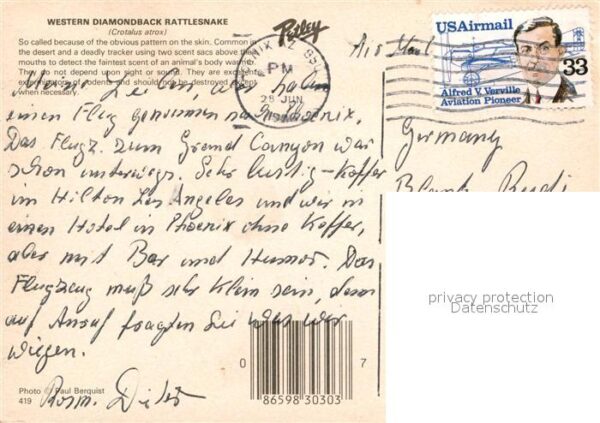 WESTERN DIAMONDBACK RATTLESNAKE
(Crotalus atrox)
So called because of the obvious pattern on the skin. Common in
the desert and a deadly tracker using two scent sacs above the
mouths to detect the faintest scent of an animal's body warmth.
They do not depend upon sight or sound. They are excellent
of rodents and should not be destroyed except
when necessary.
Petley
PHOENIX AZ 850
PM
28 JUN
Air Mail
USAirmail
33
Alfred V. Verville
Aviation Pioneer
Meine Lieben, wir haben
einen Flug genommen nach Phoenix.
Das Flugz. zum Grand Canyon war
schon unterwegs. Sehr lustig - Koffer
im Hilton Los Angeles und wir in
einen Hotel in Phoenix ohne Koffer,
aber mit Bar und Humor. Das
Flugzeug muß sehr klein sein, denn
auf Anruf fragten Sie was wir
wiegen.
Rosm. Dieter
Germany
Rudi
privacy protection
Datenschutz
Photo © Paul Berquist
419
0 86598 30303 7